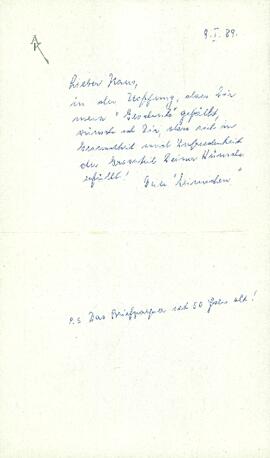 9.I.89.
Lieber Hans,
in der Hoffnung, dass Dir
mein "Geschenk" gefällt,
wünsch ich Dir, dass sich in
Gesundheit und Zufriedenheit
der Deiner Wünsche
erfüllt!
P.S. Das Briefpapier ist 50 Jahre alt!